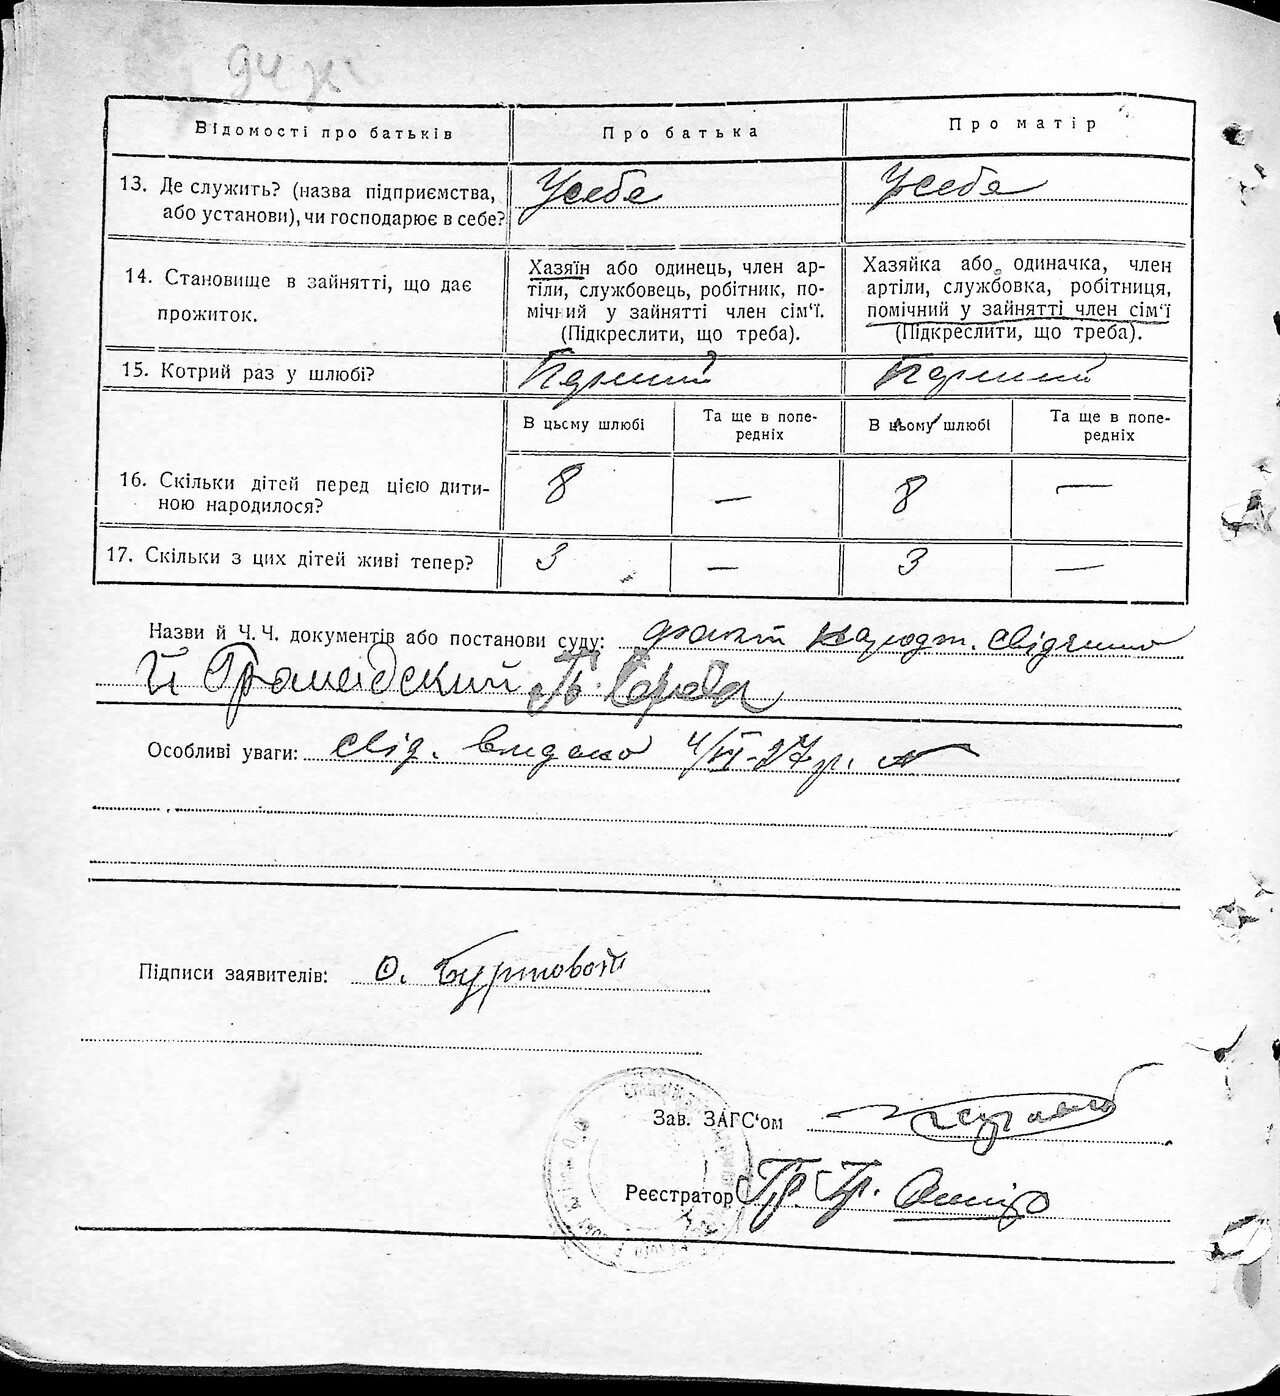 Відомості про батьків
Про батька
Про матір
13. Де служить? (назва підприємства, або установи), чи господарює в себе?
У себе
У себе
14. Становище в зайнятті, що дає прожиток.
Хазяїн або одинець, член ар-
тіли, службовець, робітник, по-
мічний у зайнятті член сім'ї.
(Підкреслити, що треба).
Хазяйка або одиначка, член
артіли, службовка, робітниця,
помічний у зайнятті член сім'ї
(Підкреслити, що треба).
15. Котрий раз у шлюбі?
Перший
Перший
В цьому шлюбі
Та ще в попе-
редніх
В цьому шлюбі
Та ще в попе-
редніх
16. Скільки дітей перед цією дити-
ною народилося?
8
—
8
—
17. Скільки з цих дітей живі тепер?
3
—
3
—
Назви й Ч. Ч. документів або постанови суду: факт народж. свідчить
Особливі уваги: свід. видано 4/VI-27 р.
Підписи заявителів: О.
Зав. ЗАГС'ом
Реєстратор